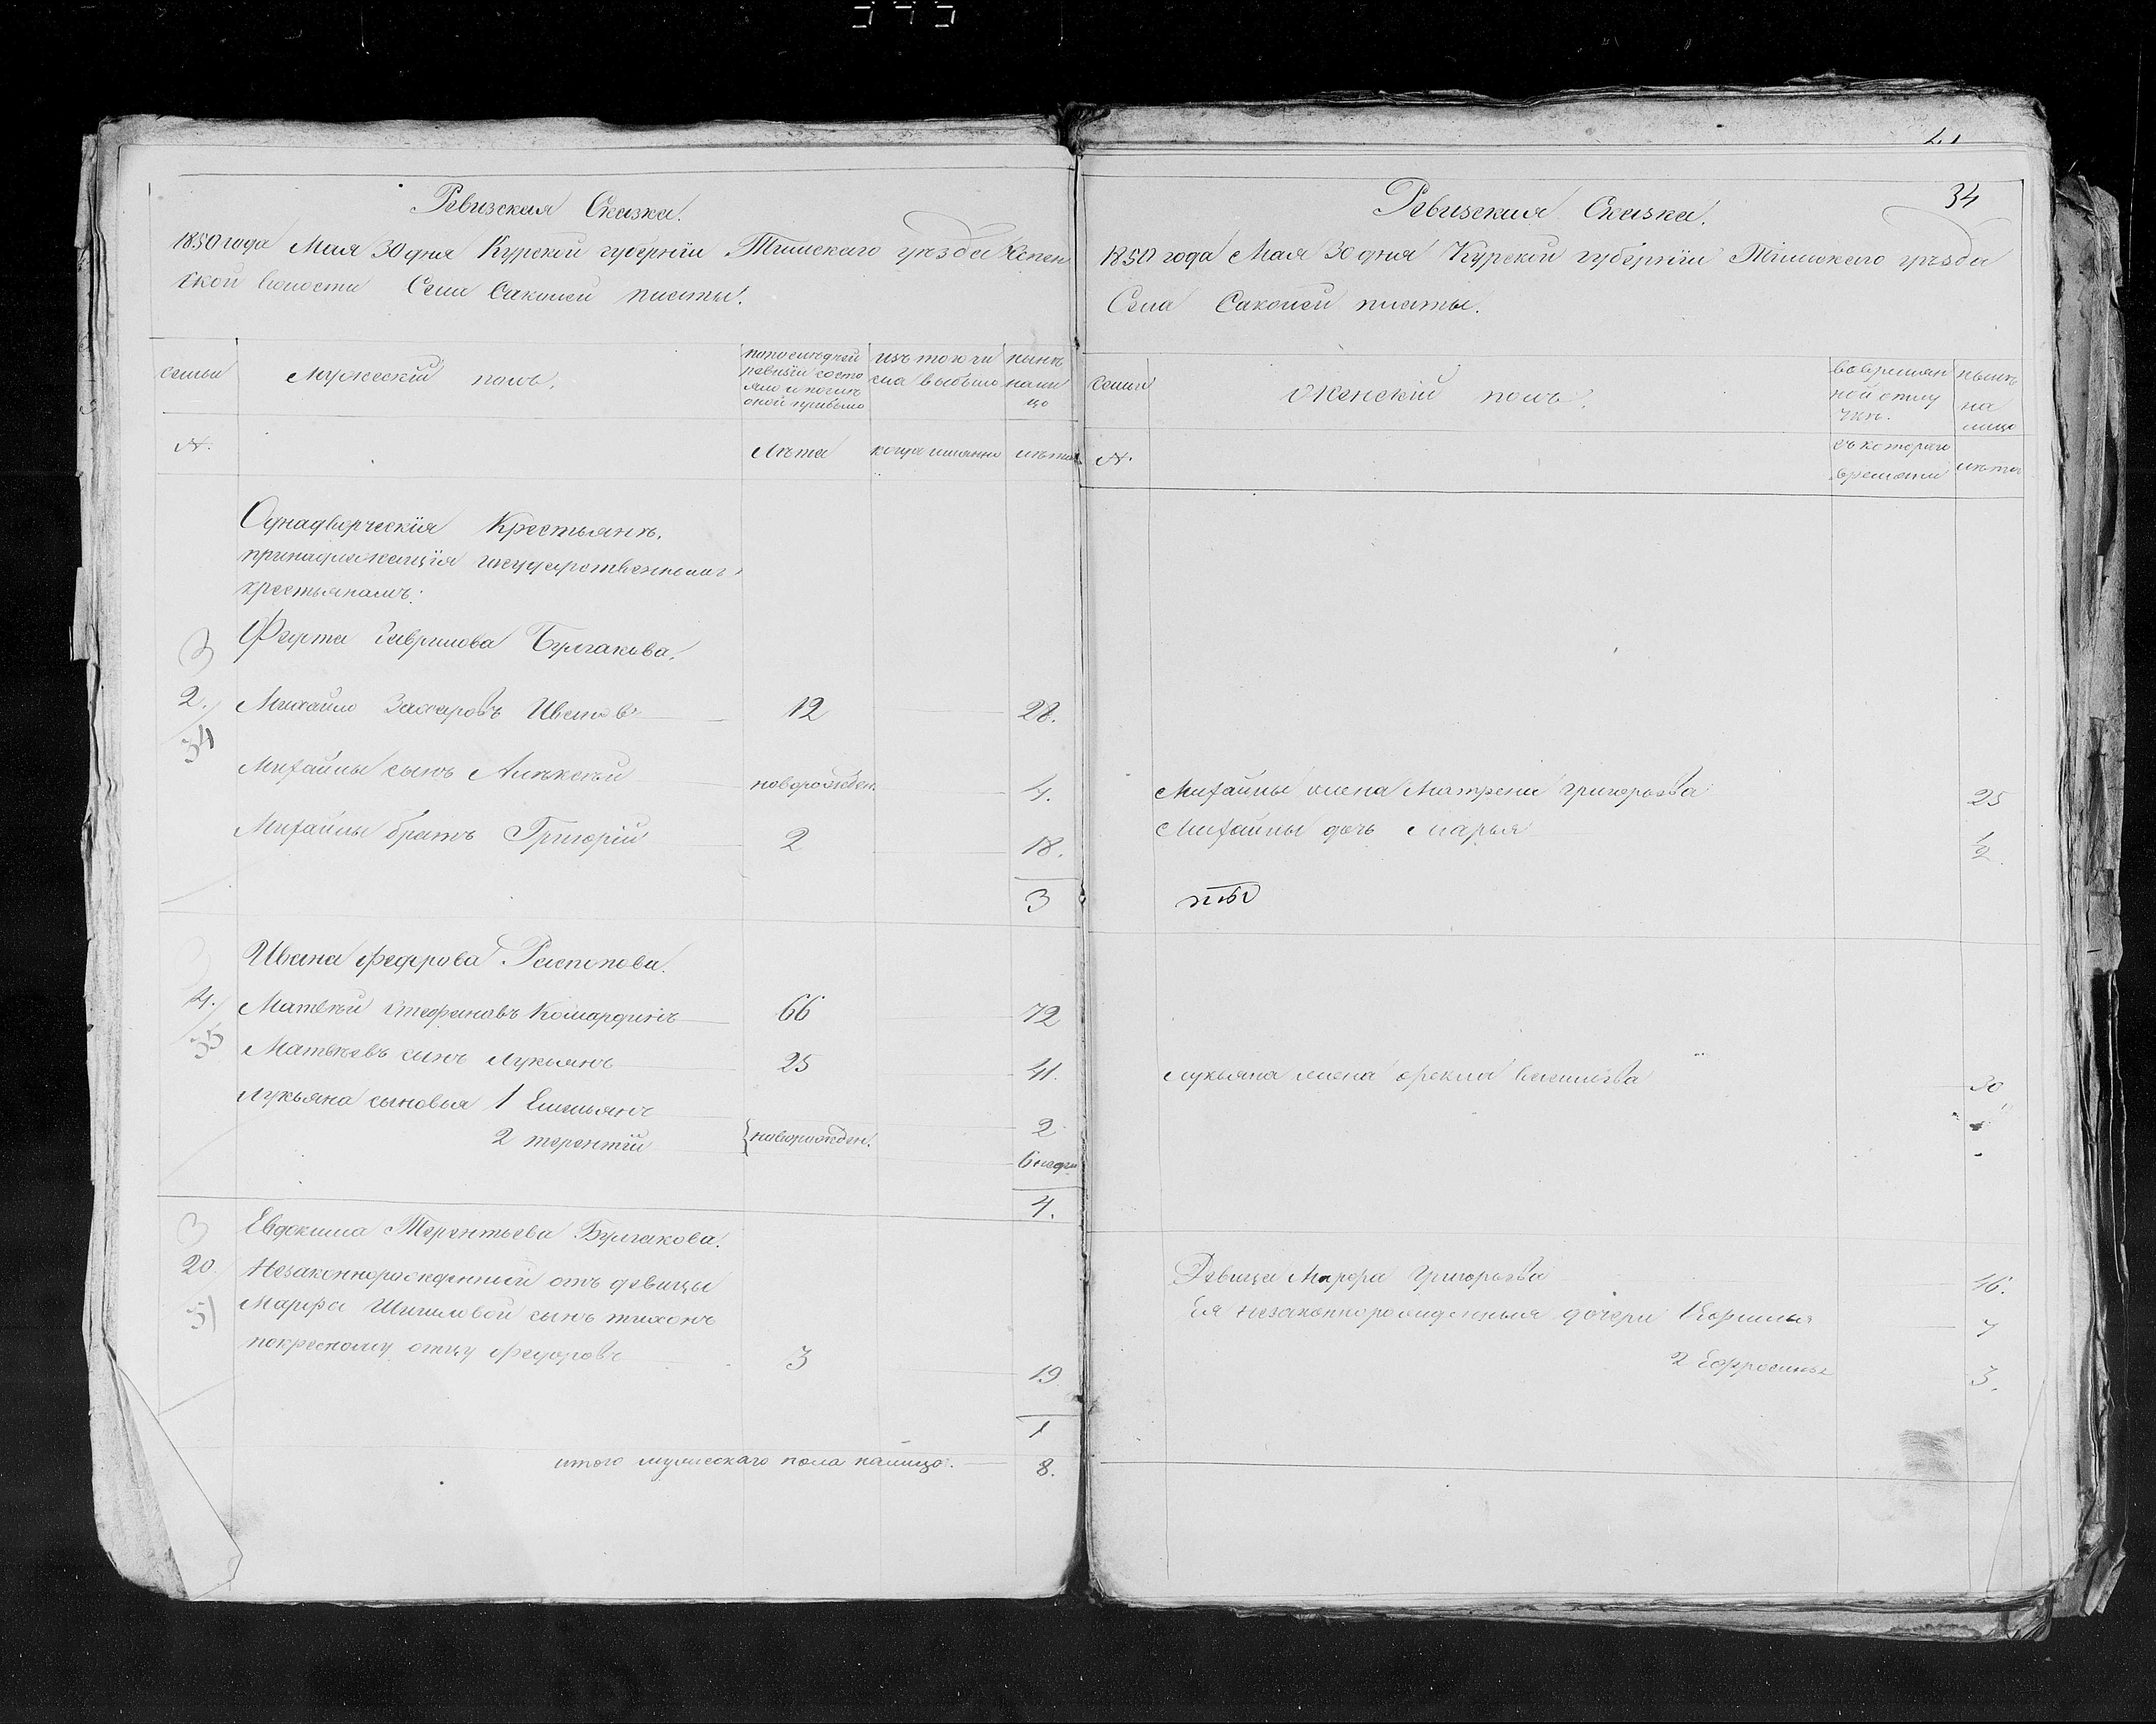 Ревизская Сказка.
1850 года Мая 30 дня Курской губернiи Тимскаго уѣзда Кспен
ской волости Села Сакольей плоты.
семьи
Мужескiй полъ.
попослѣдней
ревизiи состо
яло и послѣ
оной прибыло
изъ того чи
сла выбыло
нынѣ
на ли
цо
№.
Лѣта
когда имянно
лѣта
Однадворческiя Крестьянѣ,
принадлежащiя государственнымъ
крестьянамъ:
Федота Гаврилова Булгакова.
3
2.
34
Михайло Захаровъ Ивановъ
12
28.
Михайлы сынъ Алѣксѣй
новорожден.
4.
Михайлы братъ Григорiй
2
18.
3
Ивана Федорова Распопова.
3
4.
35
Матвѣй Стефановъ Комардинъ
66
72
Матвѣевъ сынъ Лукьянъ
25
41.
Лукьяна сыновья 1 Емельянъ
2
2 терентiй
новорожден.
6 недѣл
4.
3
Евдокима Терентьева Булгакова.
20.
51
Незаконнорожденный отъ девицы
Марфы сынъ тихонъ
покресному отцу Федоровъ
3
19
1
итого мужескаго пола налицо.
8.
34
Ревизская Сказка.
1850 года Мая 30 дня Курской губернiи Тимскаго уѣзда
Села Сакольей плоты.
Семьи
Женскiй полъ.
вовремян
ной отлу
чкѣ.
нынѣ
на
лицо
№.
съ котораго
времени
лѣта
Михайлы жена Матрена Григорьева
25
Михайлы дочь Марья
1/2.
Лукьяна жена Фекла Васильева
30
Девица Марфа Григорьева
46.
Ея незаконнорожденныя дочери 1
7
2 Ефросинья
3.